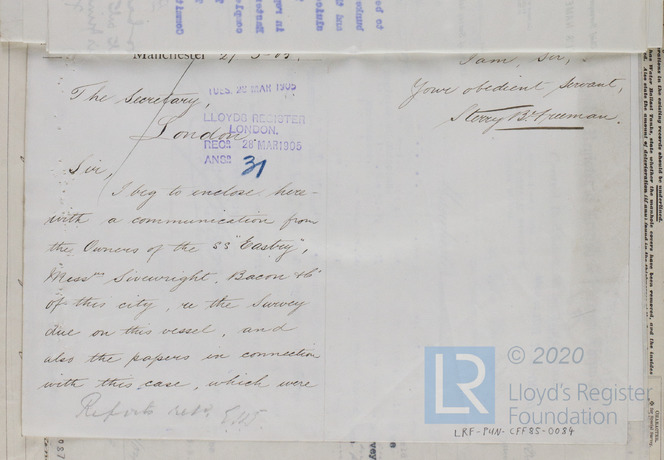 Manchester
The Secretary,
London
TUES. 28 MAR 1905
LLOYDS REGISTER
LONDON.
RECD 28 MAR 1905
ANSD 31
Sir,
I beg to enclose here-
with a communication from
the Owners of the SS "Easby",
Messrs Sivewright, Bacon & Co
of this city, re the Survey
due on this vessel, and
also the papers in connection
with this case, which were
Reports retd
I am, Sir,
Your obedient Servant,
Sterry B. Freeman.
LR © 2020
Lloyd's Register
Foundation
LRF-PUN-CFF85-0084